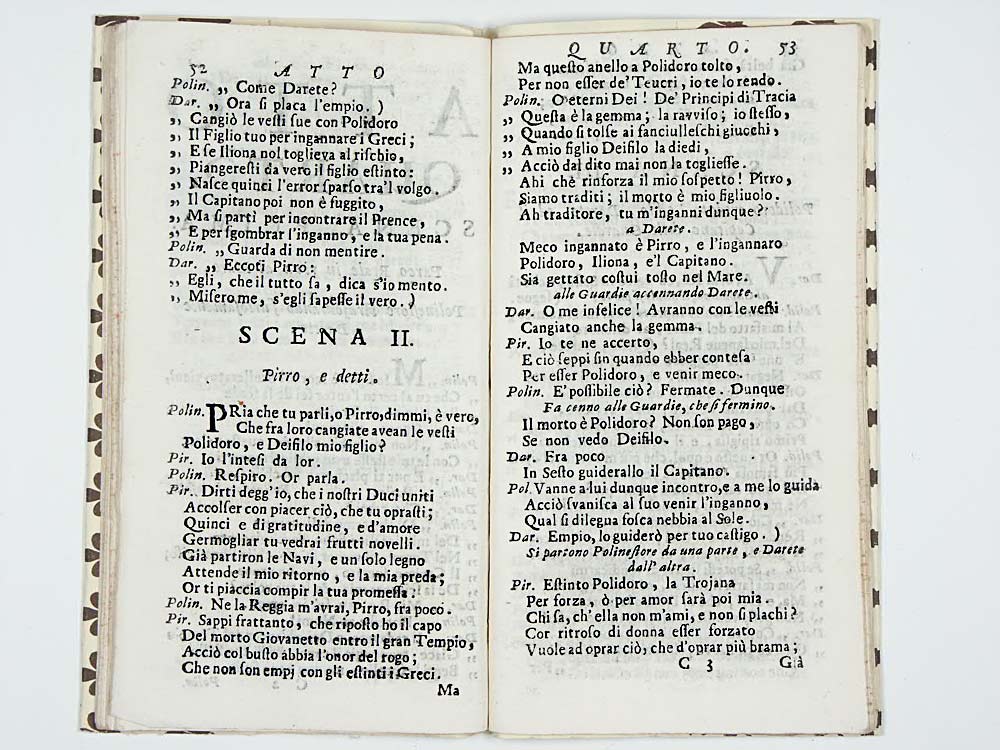 52 ATTO
Polin. „ Come Darete?
Dar. „ Ora ſi placa l'empio. )
„ Cangiò le veſti ſue con Polidoro
„ Il Figlio tuo per ingannare i Greci;
„ E ſe Iliona nol toglieva al riſchio,
„ Piangereſti da vero il figlio eſtinto:
„ Naſce quinci l'error ſparſo tra'l volgo.
„ Il Capitano poi non è fuggito,
„ Ma ſi partì per incontrare il Prence,
„ E per ſgombrar l'inganno, e la tua pena.
Polin. „ Guarda di non mentire.
Dar. „ Eccoti Pirro:
„ Egli, che il tutto ſa, dica s'io mento.
„ Miſero me, s'egli ſapeſſe il vero. )
SCENA II.
Pirro, e detti.
Polin. PRia che tu parli, o Pirro, dimmi, è vero,
Che fra loro cangiate avean le veſti
Polidoro, e Deifilo mio figlio?
Pir. Io l'inteſi da lor.
Polin. Reſpiro. Or parla.
Pir. Dirti degg'io, che i noſtri Duci uniti
Accolſer con piacer ciò, che tu opraſti;
Quinci e di gratitudine, e d'amore
Germogliar tu vedrai frutti novelli.
Già partiron le Navi, e un ſolo legno
Attende il mio ritorno, e la mia preda;
Or ti piaccia compir la tua promeſſa:
Polin. Ne la Reggia m'avrai, Pirro, fra poco.
Pir. Sappi frattanto, che ripoſto ho il capo
Del morto Giovanetto entro il gran Tempio,
Acciò col buſto abbia l'onor del rogo;
Che non ſon empj con gli eſtinti i Greci.
Ma
QUARTO. 53
Ma queſto anello a Polidoro tolto,
Per non eſſer de' Teucri, io te lo rendo.
Polin. O eterni Dei! De' Principi di Tracia
„ Queſta è la gemma; la ravviſo; io ſteſſo,
„ Quando ſi tolſe ai fanciulleſchi giucchi,
„ A mio figlio Deifilo la diedi,
„ Acciò dal dito mai non la toglieſſe.
Ahi chè rinforza il mio ſoſpetto! Pirro,
Siamo traditi; il morto è mio figliuolo.
Ah traditore, tu m'inganni dunque?
a Darete.
Meco ingannato è Pirro, e l'ingannaro
Polidoro, Iliona, e'l Capitano.
Sia gettato coſtui toſto nel Mare.
alle Guardie accennando Darete.
Dar. O me infelice! Avranno con le veſti
Cangiato anche la gemma.
Pir. Io te ne accerto,
E ciò ſeppi ſin quando ebber conteſa
Per eſſer Polidoro, e venir meco.
Polin. E' poſſibile ciò? Fermate. Dunque
Fa cenno alle Guardie, che ſi fermino.
Il morto è Polidoro? Non ſon pago,
Se non vedo Deifilo.
Dar. Fra poco
In Seſto guiderallo il Capitano.
Pol. Vanne a lui dunque incontro, e a me lo guida
Acciò ſvaniſca al ſuo venir l'inganno,
Qual ſi dilegua foſca nebbia al Sole.
Dar. Empio, lo guiderò per tuo caſtigo. )
Si partono Polineſtore da una parte, e Darete
dall'altra.
Pir. Eſtinto Polidoro, la Trojana
Per forza, ò per amor ſarà poi mia.
Chi ſa, ch'ella non m'ami, e non ſi plachi?
Cor ritroſo di donna eſſer forzato
Vuole ad oprar ciò, che d'oprar più brama;
C 3 Già